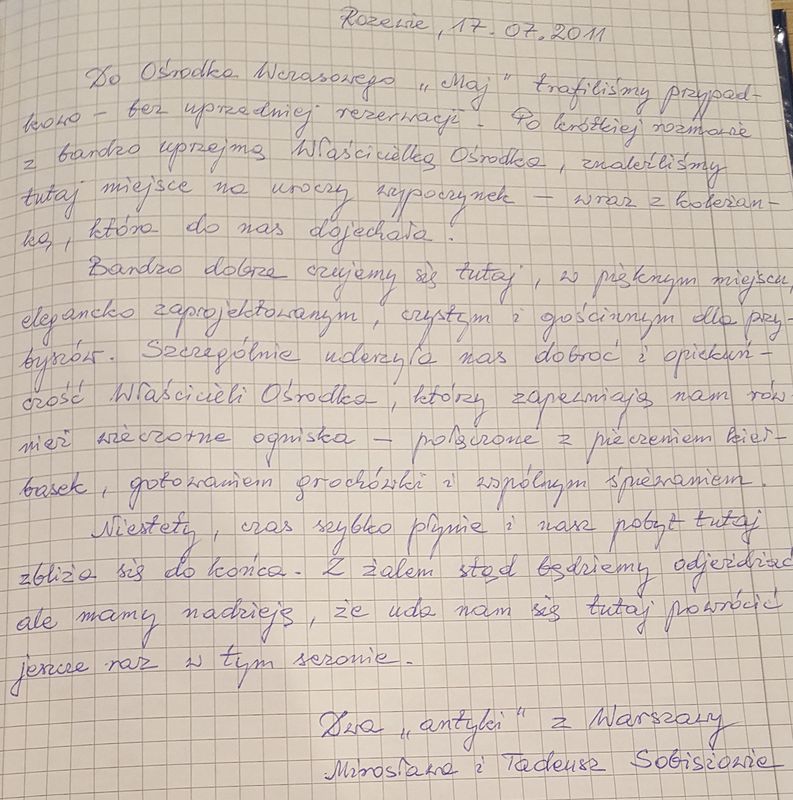 Rozewie, 17.07.2011
Do Ośrodka Wczasowego „Maj" trafiliśmy przypad-
kowo – bez uprzedniej rezerwacji. Po krótkiej rozmowie
z bardzo uprzejmą Właścicielką Ośrodka, znaleźliśmy
tutaj miejsce na uroczy wypoczynek – wraz z koleżan-
ką, która do nas dojechała.
Bardzo dobrze czujemy się tutaj, w pięknym miejscu,
elegancko zaprojektowanym, czystym i gościnnym dla przy-
byszów. Szczególnie uderzyła nas dobroć i opiekuń-
czość Właścicieli Ośrodka, którzy zapewniają nam rów
nież wieczorne ogniska – połączone z pieczeniem kieł-
basek, gotowaniem grochówki i wspólnym śpiewaniem.
Niestety, czas szybko płynie i nasz pobyt tutaj
zbliża się do końca. Z żalem stąd będziemy odjeżdżać
ale mamy nadzieję, że uda nam się tutaj powrócić
jeszcze raz w tym sezonie.
Dwa „antyki" z Warszawy
Mirosława i Tadeusz Sobisiowie